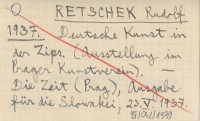 RETSCHEK Rudolf
1937. Deutsche Kunst in
der Zips. (Ausstellung im
Prager Kunstverein). —
Die Zeit (Prag), Ausgabe
für die Slowakei, 23. V. 1937.